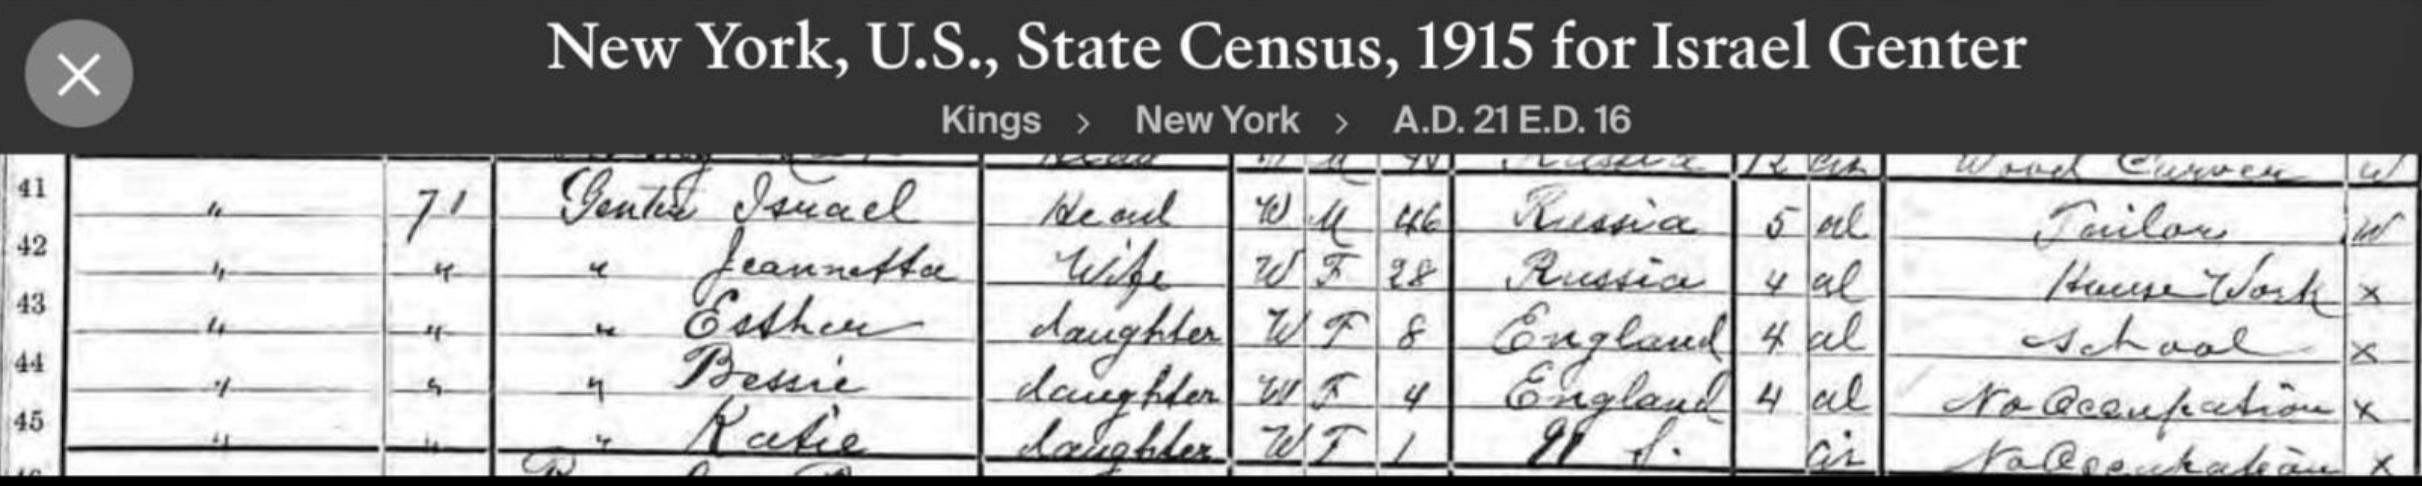 New York, U.S., State Census, 1915 for Israel Genter
Kings > New York > A.D. 21 E.D. 16
Head W M Russia 12 Wood Carver W
41 " 71 Genter Israel Head W M 46 Russia 5 al Tailor W
42 " " " Jeannetta Wife W F 28 Russia 4 al House Work x
43 " " " Esther daughter W F 8 England 4 al School x
44 " " " Bessie daughter W F 4 England 4 al No Occupation x
45 " " " Katie daughter W F 1 U S. cit No Occupation x